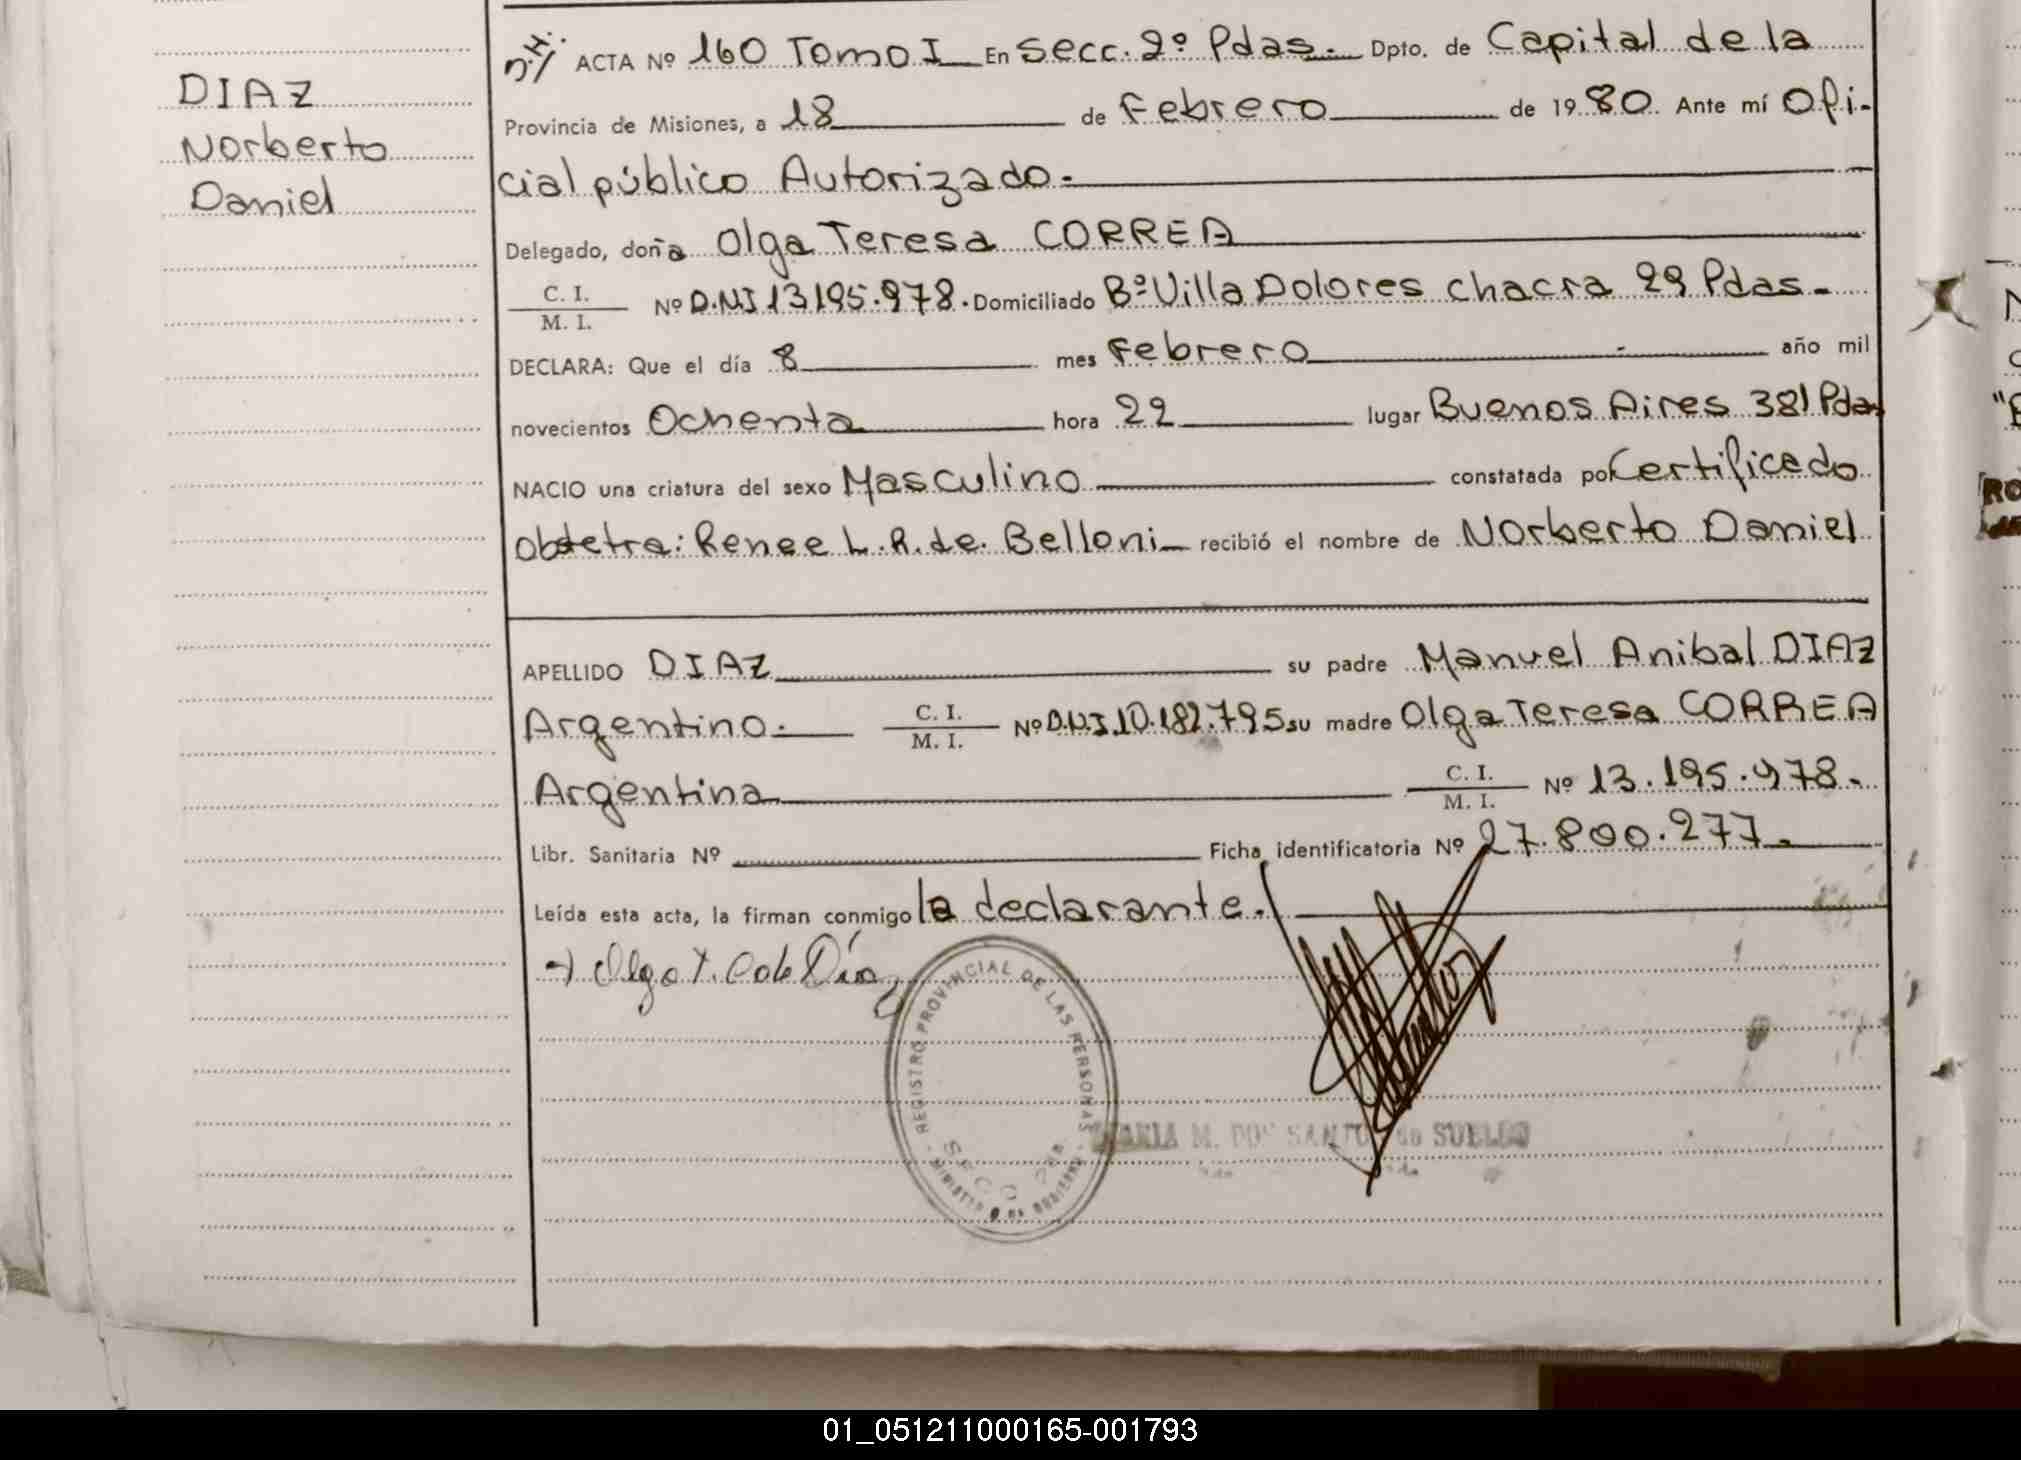 DIAZ
Norberto
Daniel
ACTA Nº 160 Tomo I En Secc. 2º Pdas. Dpto. de Capital de la
Provincia de Misiones, a 18 de Febrero de 1980. Ante mí Ofi-
cial público Autorizado.
Delegado, doña Olga Teresa CORREA
C. I.
M. I. Nº D.N.I 13195.978. Domiciliado Bº Villa Dolores chacra 29 Pdas.
DECLARA: Que el día 8 mes Febrero año mil
novecientos Ochenta hora 22 lugar Buenos Aires 381 Pdas
NACIO una criatura del sexo Masculino constatada por Certificado
Obstetra: Renee L.R. de. Belloni recibió el nombre de Norberto Daniel
APELLIDO DIAZ su padre Manuel Anibal DIAZ
Argentino. C. I.
M. I. Nº D.N.I. 10.182.795 su madre Olga Teresa CORREA
Argentina C. I.
M. I. Nº 13.195.978.
Libr. Sanitaria Nº Ficha identificatoria Nº 27.800.277.
Leída esta acta, la firman conmigo la declarante.
Olga T. C de Díaz
REGISTRO PROVINCIAL DE LAS PERSONAS
MARIA M. DOS SANTOS de SUELDO
01_051211000165-001793